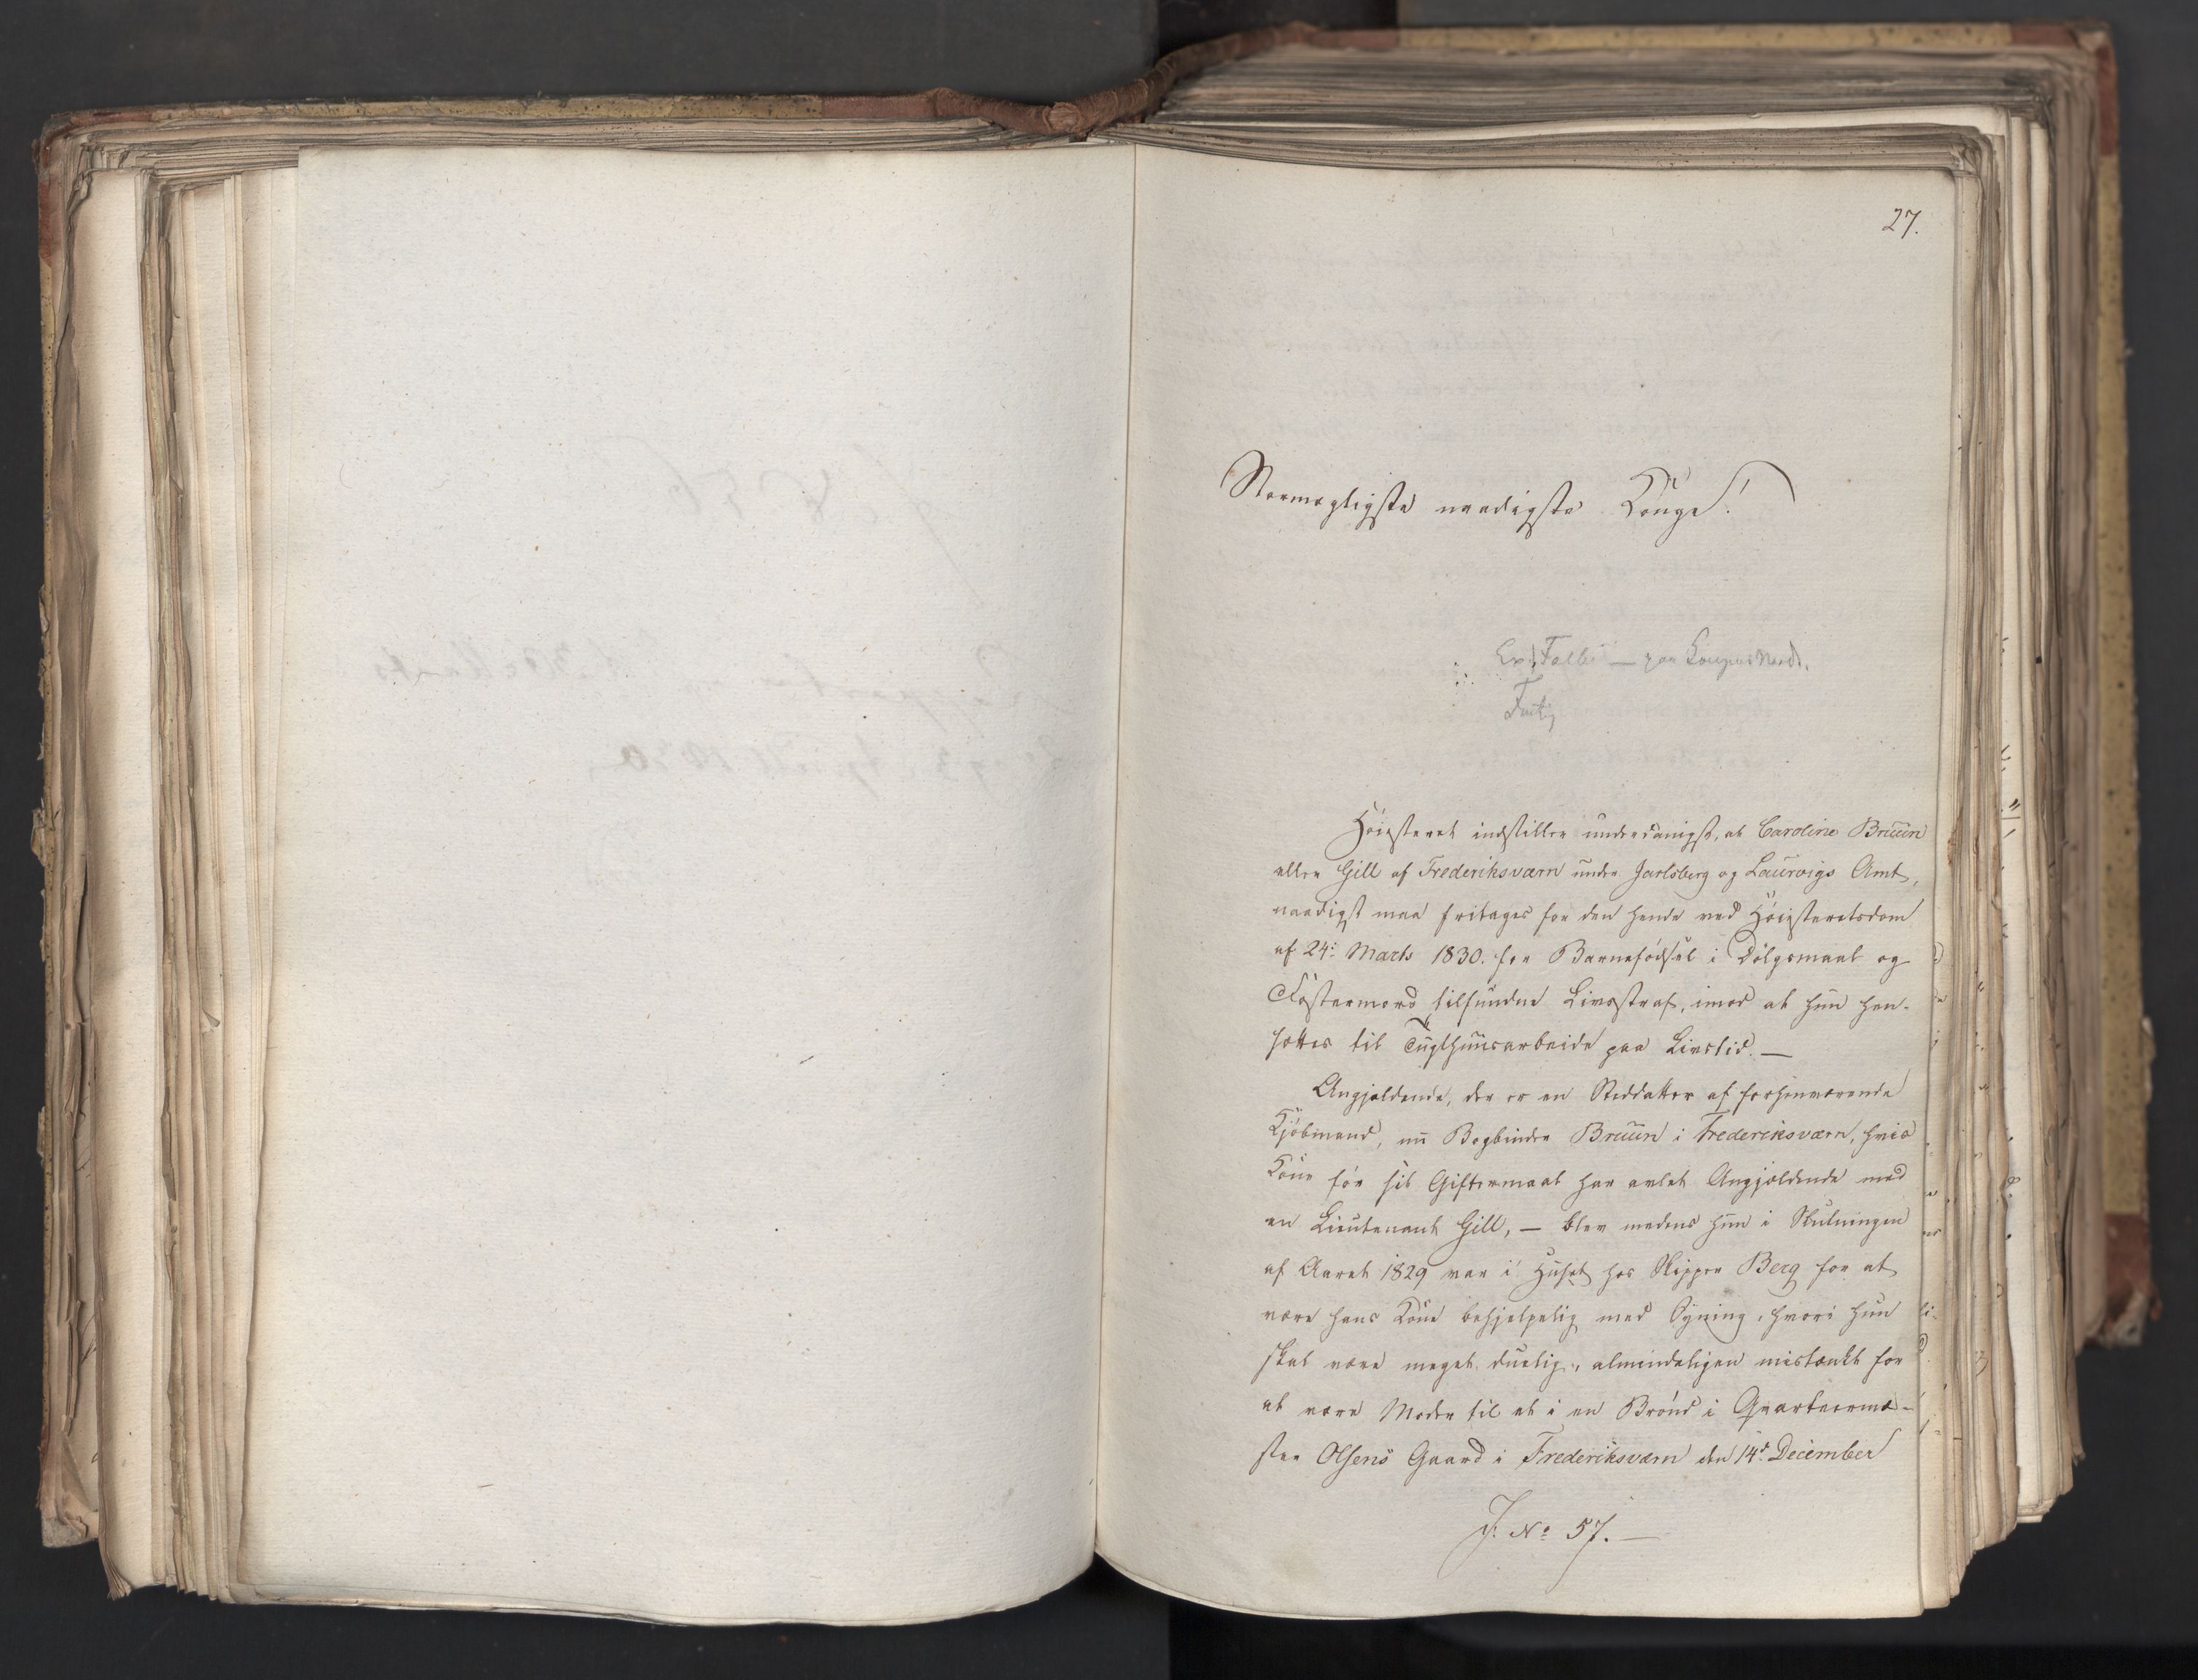 27.
Stormægtigste naadigste Konge!
paa Kongens Vegne.
Høiesteret indstiller underdanigst, at Caroline Bruun
eller Gill af Frederiksværn under Jarlsberg og Laurvigs Amt,
naadigst maa fritages for den hende ved Høiesteretsdom
af 24: Marts 1830. for Barnefødsel i Dølgsmaal og
Fostermord tilfundne Livsstraf, imod at hun hen-
sættes til Tugthuusarbeide paa Livstid. —
Angjeldende, der er en Steddatter af forhenværende
Kjøbmand, nu Bogbinder Bruun i Frederiksværn, hvis
Kone før sit Giftermaal har avlet Angjeldende med
en Lieutenant Gill, — blev medens hun i Slutningen
af Aaret 1829 var i Huset hos Skipper Berg for at
være hans Kone behjelpelig med Syning, hvori hun
skal være meget duelig, almindeligen mistænkt for
at være Moder til et i en Brønd i Qvarteerme-
ster Olsens Gaard i Frederiksværn den 14d December
J: No 57. —